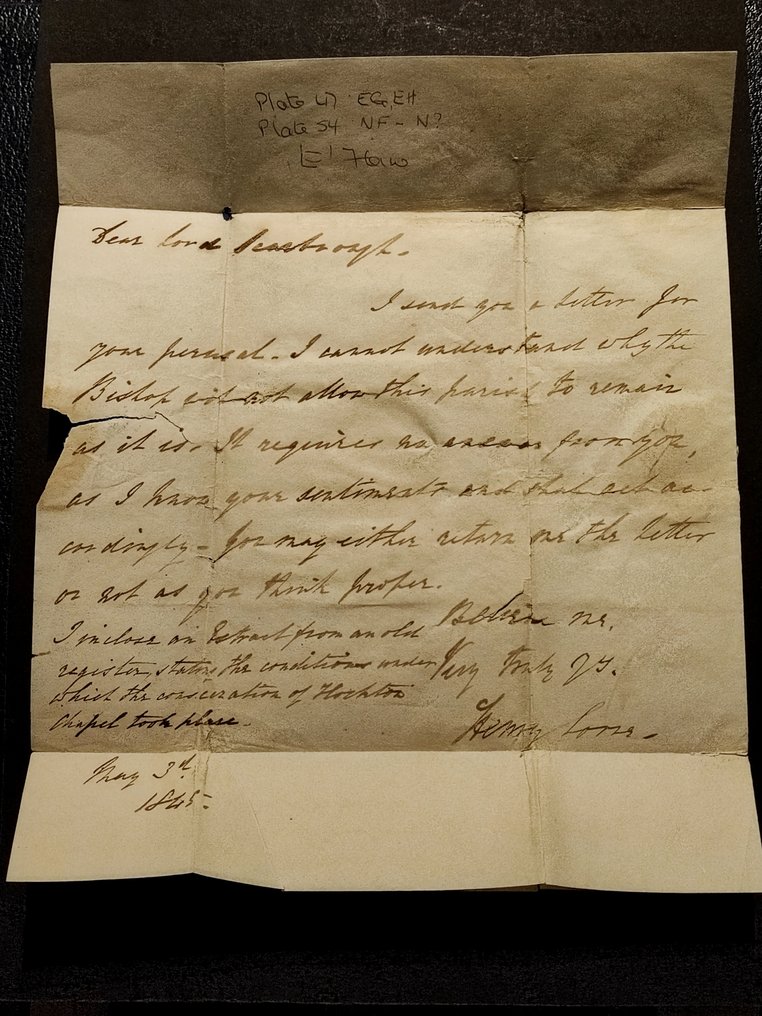 Plate 47 EG, EH
Plate 54 NF - N?
Dear Lord Scarbrough.
I send you a letter for
your perusal. I cannot understand why the
Bishop will not allow this parish to remain
as it is. It requires no answer from you,
as I know your sentiments and shall act ac-
cordingly - You may either return me the letter
or not as you think proper.
Believe me,
Very truly Ys.
Henry
I inclose an Extract from an old
register, stating the conditions under
which the consecration of
Chapel took place.
May 3d.
1845.